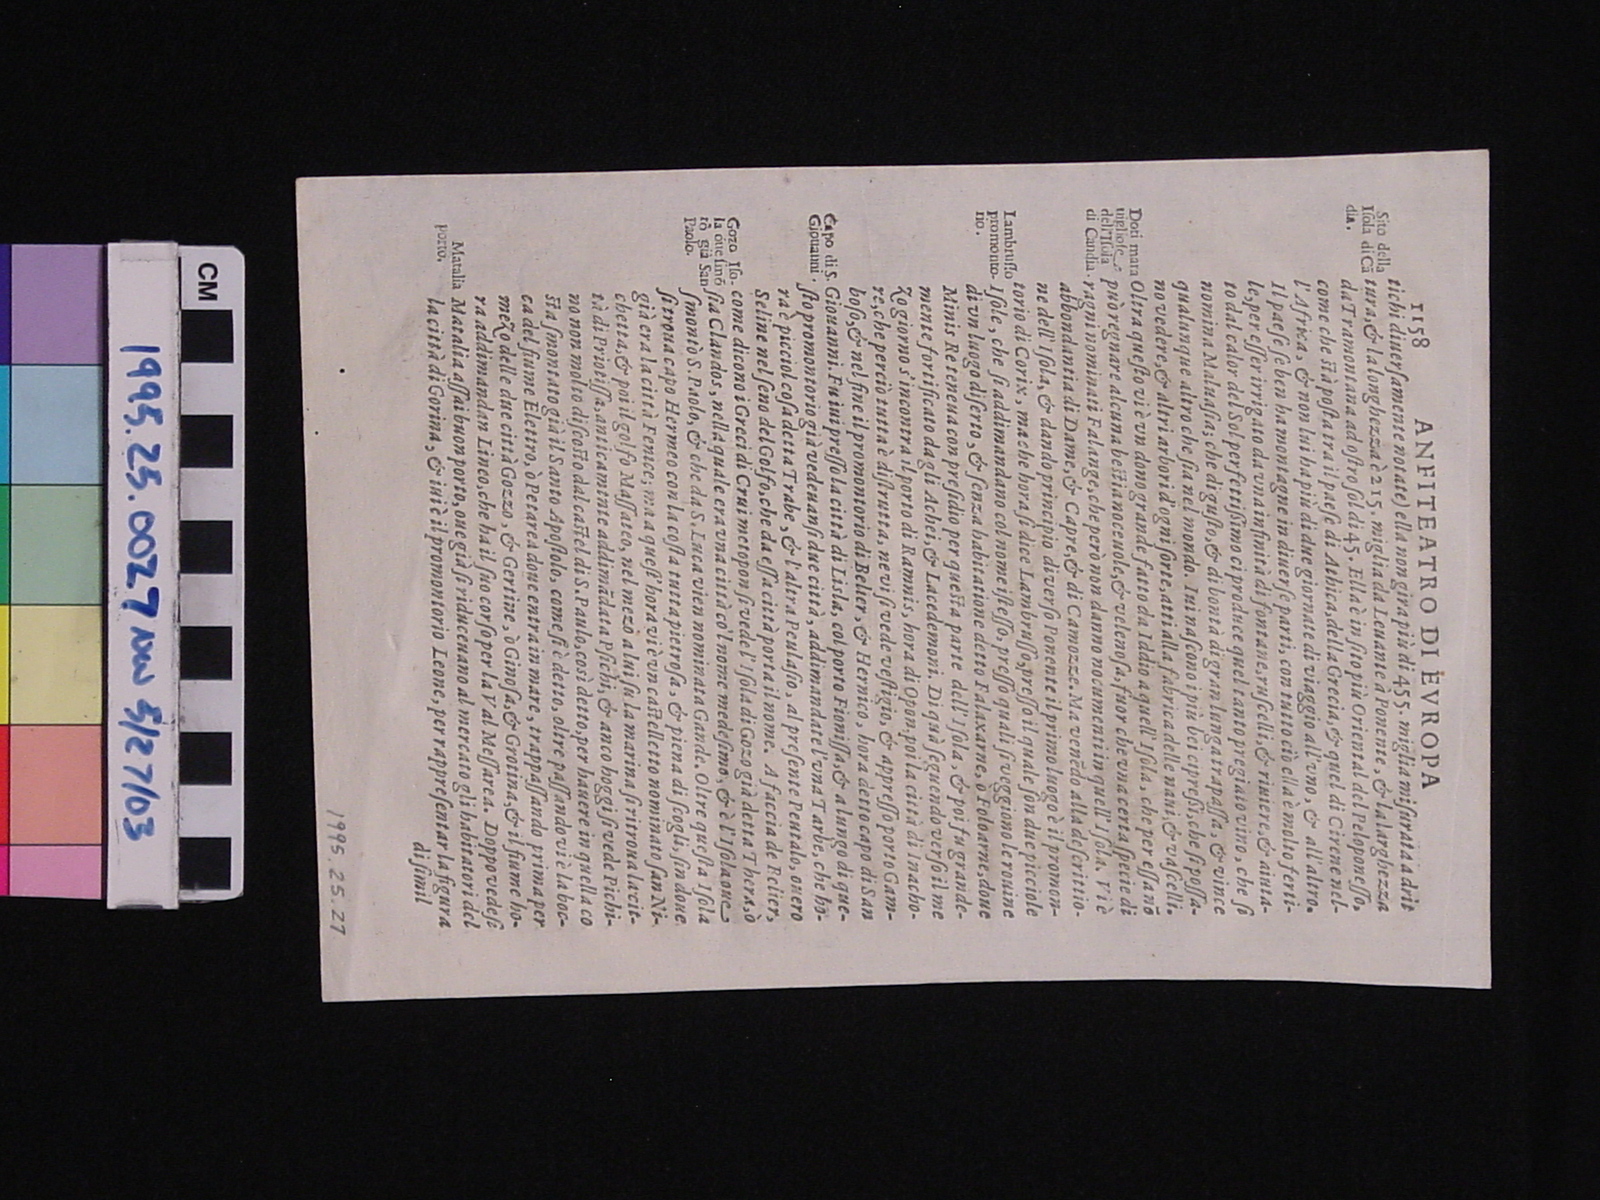 1158
ANFITEATRO DI EVROPA
tichi diuersamente notate) ella non gira più di 455. miglia misurata a drit
tura, & la longhezza è 215. miglia da Leuante à Ponente, & la larghezza
da Tramontana ad ostro sol di 45. Ella è in sito più Oriental del Peloponesso,
come che stà posta tra il paese di Athica, della Grecia, & quel di Cirene nel-
l'Africa, & non lui hà più di due giornate di viaggio all'vno, & all'altro.
Il paese se ben ha montagne in diuerse parti, con tutto ciò ella è molto ferti-
le, per esser irrigato da vna infinità di fontane, ruscelli, & riuiere, & aiuta-
to dal calor del Sol perfettissimo ci produce quel tanto pregiato vino, che si
nomina Maluasia; che di gusto, & di bontà di gran lunga trapassa, & vince
qualunque altro che sia nel mondo. Iui nascono i più bei cipressi, che si possa-
no vedere, & altri arbori d'ogni sorte, atti alla fabrica delle naui, & vascelli.
Oltra questo vi è vn dono grande fatto da Iddio a quell'Isola, che per essa nō
può regnare alcuna bestia nociuole, & velenosa, fuor che vna certa specie di
ragni nominati Falange, che però non danno nocumenti in quell'Isola. Vi è
abbondantia di Dame, & Capre, & di Camozze. Ma venēdo alla descrittio-
ne dell'Isola, & dando principio di verso Ponente il primo luogo è il promon-
torio di Corix, ma che hora si dice Lambrusso, presso il quale son due picciole
Isole, che si addimandano col nome istesso, presso quali si veggiono le rouine
di vn luogo diserto, & senza habitatione detto Falaxarne, ò Foloarne, doue
Minis Re teneua con presidio per questa parte dell'Isola, & poi fu grande-
mente fortificato dagli Achei, & Lacedemoni. Di quà seguendo verso il me
zo giorno s'incontra il porto di Ramnis, hora di Opon, poi la città di Inacho-
re, che perciò tutta è distrutta, ne vi si vede vestigio, & appresso porto Gam-
boso, & nel fine il promontorio di Belier, & Hernico, hora detto capo di San
Giouanni. Fu iui presso la città di Lisla, col porto Fionissa & a lungo di que-
sto promontorio già vedeuansi due città, addimandate l'vna Tarbe, che ho-
ra è picciol cosa detta Trabe, & l'altra Peulasio, al presente Pentalo, ouero
Seline nel seno del Golfo, che da essa città porta il nome. A faccia de Belier,
come dicono i Greci di Crui metopon si vede l'Isola di Gozo già detta Thera, ò
sia Clandos, nella quale era vna città co'l nome medesimo, & è l'Isola oue
smontò S. Paolo, & che da S. Luca vien nominata Gande. Oltre questa Isola
si troua capo Hermeo con la costa tutta pietrosa, & piena di scogli, sin doue
già era la città Fenice; ma a quest'hora vi è vn castelletto nominato san Ni-
chetta, & poi il golfo Massaeo, nel mezo a lui su la marina si ritroua la cit-
tà di Priotissa, anticamente addimādata Psichi, & anco hoggi si vede Pichi-
no non molto discosto dal castel di S. Paulo, così detto, per hauere in quella co
sta smontato già il Santo Apostolo, come si è detto, oltre passando vi è la boc-
ca del fiume Elettro, ò Petarea doue entra in mare, trappassando prima per
mezo delle due città Gozzo, & Gertine, ò Ginosa, & Groina, & il fiume ho-
ra addimandan Lineo, che ha il suo corso per la Val Messarea. Doppo vedesi
Matalia assai buon porto, oue già si riduceuano al mercato gli habitatori del
la città di Gorina, & iui è il promontorio Leone, per rappresentar la figura
di simil
Sito della
Isola di Cā
dia.
Doti mara
uigliose
dell'Isola
di Candia.
Lambrusso
promonto-
rio.
Capo di S.
Giouanni.
Gozo Iso-
la oue smō
tò già San
Paolo.
Matalia
porto.
1995.25.27
CM
1995.25.002.7 NW 5/27/03